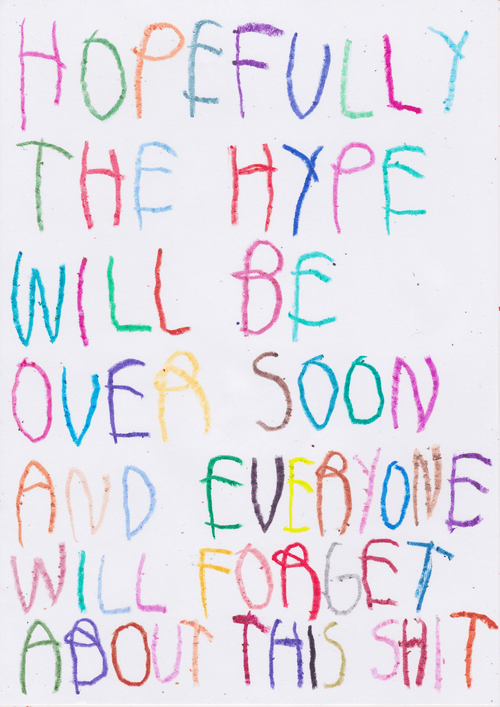 HOPEFULLY
THE HYPE
WILL BE
OVER SOON
AND EVERYONE
WILL FORGET
ABOUT THIS SHIT